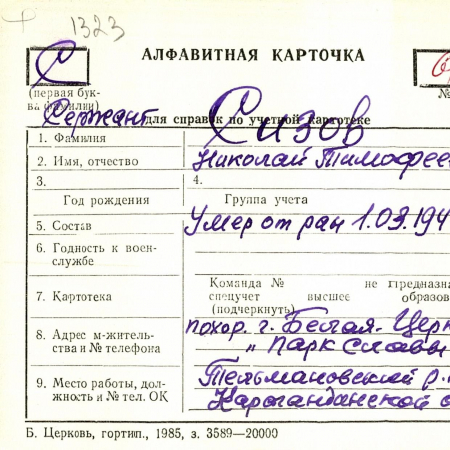 1323
АЛФАВИТНАЯ КАРТОЧКА
С
(первая бук-
ва фамилии)
№
Сержант
для справок по учетной картотеке
Сизов
1. Фамилия
2. Имя, отчество Николай Тимофее
3. 4.
Год рождения Группа учета
5. Состав Умер от ран 1.03.194
6. Годность к воен-
службе
Команда № не предназна
7. Картотека спецучет высшее образов
(подчеркнуть)
8. Адрес м-житель-
ства и № телефона
похор. г. Белая-Церк
" парк славы
9. Место работы, дол-
жность и № тел. ОК
Тельмановский р-
Карагандинской о
Б. Церковь, гортип., 1985, з. 3589—20000